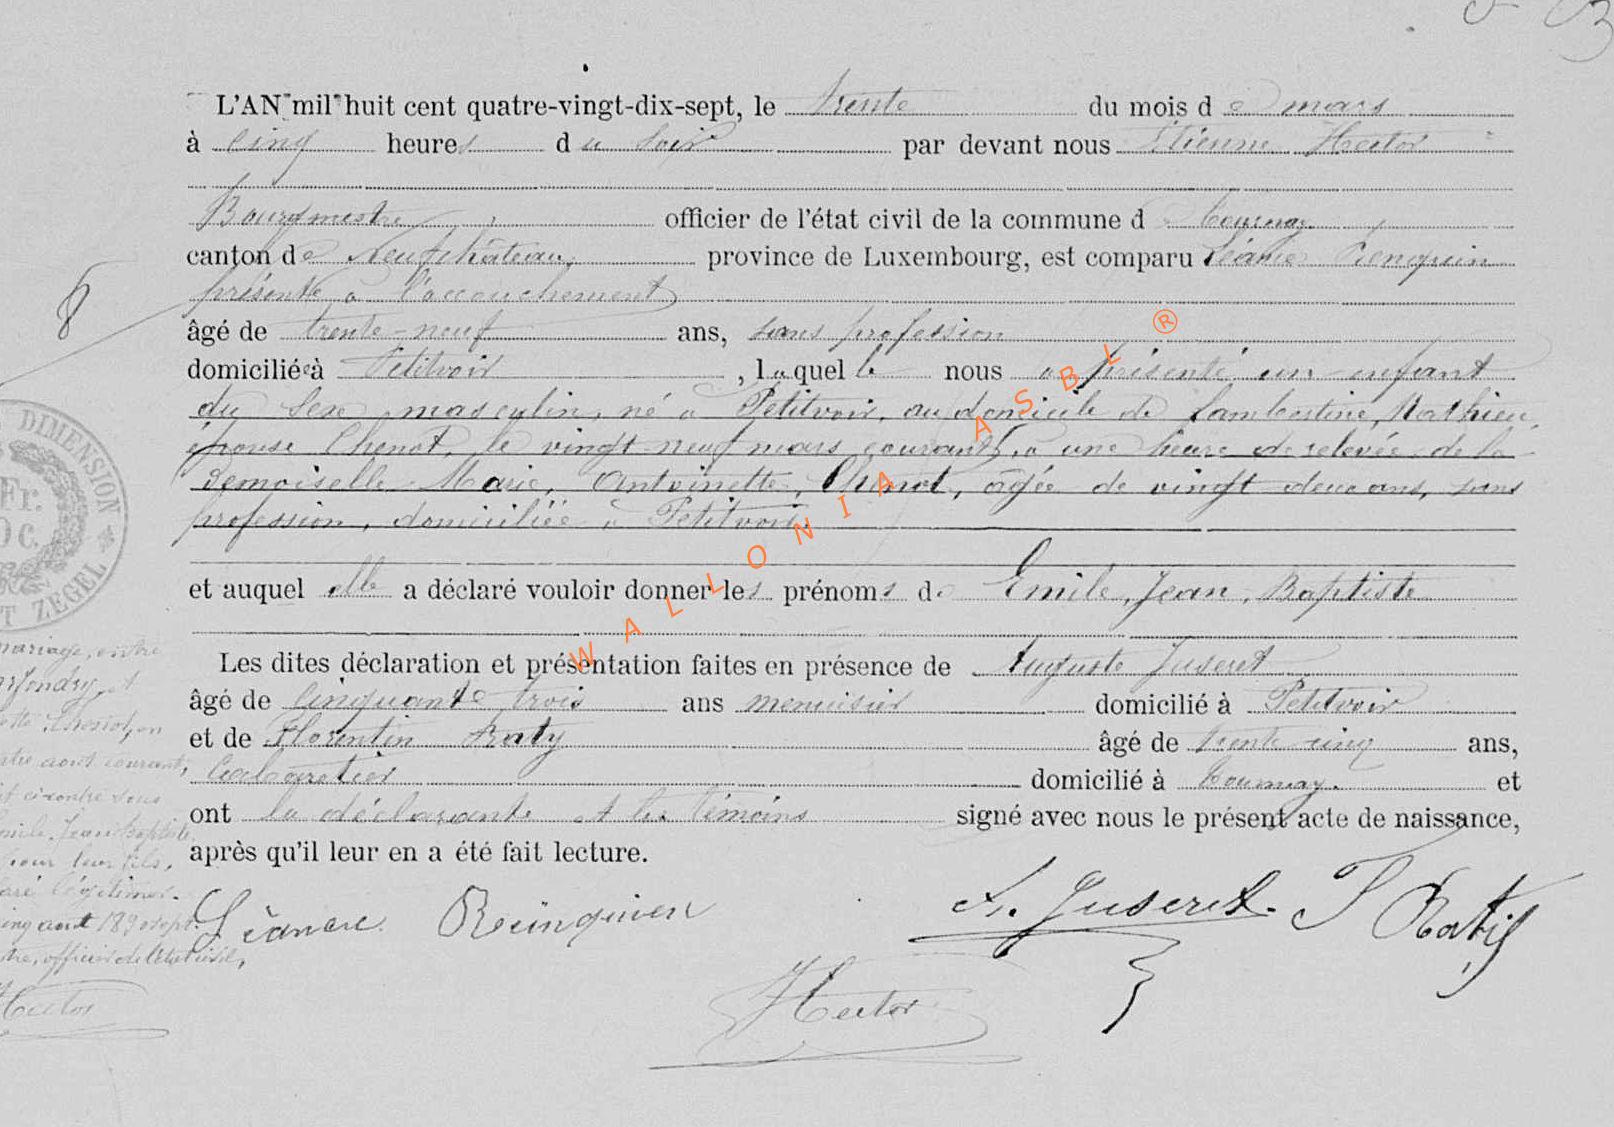 L'AN mil huit cent quatre-vingt-dix-sept, le trente du mois de mars
à cinq heures du soir par devant nous Etienne Hector
Bourgmestre, officier de l'état civil de la commune de Tournay
canton de Neufchâteau, province de Luxembourg, est comparu Léance
présente à l'accouchement
âgé de trente-neuf ans, sans profession
domiciliée à Petitvoir, laquelle nous a présenté un enfant
du sexe masculin, né à Petitvoir, au domicile de Lambertine Mathieu,
épouse Chenot, le vingt neuf mars courant, à une heure de relevée de la
Demoiselle Marie, Antoinette, Chenot, âgée de vingt deux ans, sans
profession, domiciliée à Petitvoir.
et auquel elle a déclaré vouloir donner les prénoms de Emile, Jean, Baptiste
Les dites déclaration et présentation faites en présence de Auguste Juseret
âgé de cinquante trois ans menuisier domicilié à Petitvoir
et de Florentin Raty âgé de trente cinq ans,
Cabaretier domicilié à Tournay. et
ont la déclarante et les témoins signé avec nous le présent acte de naissance,
après qu'il leur en a été fait lecture.
Juseret
Hector
DIMENSION
Fr.
C.
ZEGEL
mariage, entre
et
Chenot, en
août courant,
ci contre sous
Emile, Jean Baptiste
pour leur fils,
légitimer.
cinq août 189 sept.
officier de l'état civil,
Hector
WALLONIA ASBL ®